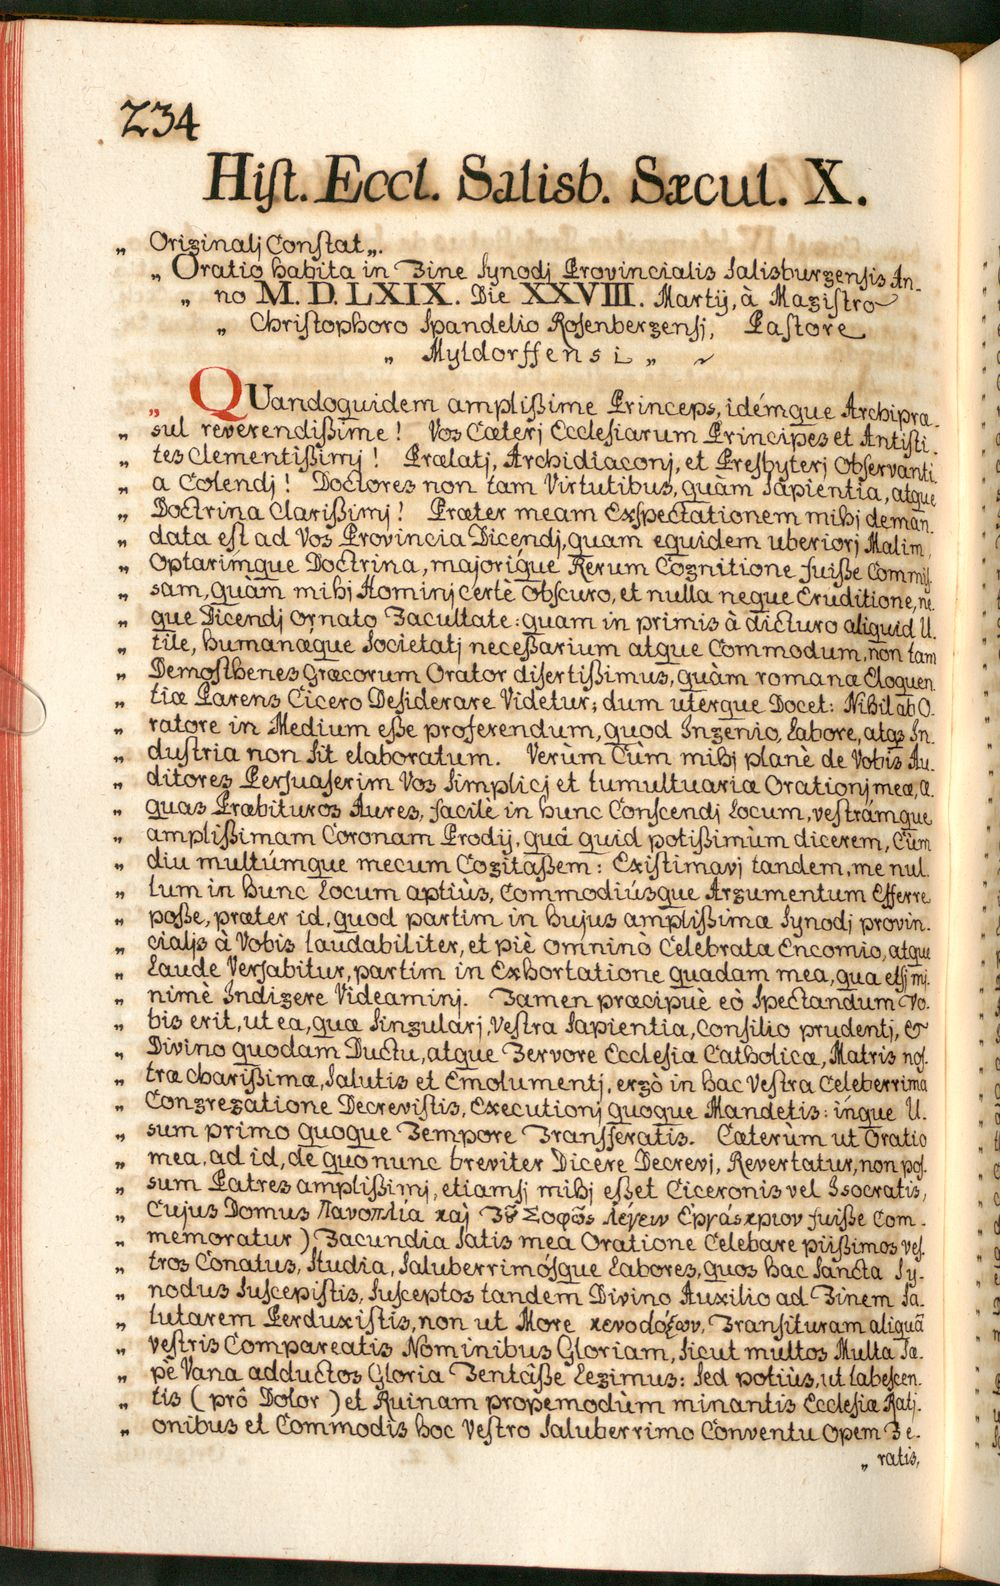 234
Hist. Eccl. Salisb. Sæcul. X.
„ Originalj Constat „.
„ Oratio habita in Fine Synodj Provincialis Salisburgensis An-
„ no M. D. LXIX. Die XXVIII. Martij, à Magistro
„ Christophoro Spandelio Rosenbergensj, Pastore
„ Myldorffensi „
„ QUandoquidem amplißime Princeps, idémque Archipræ-
„ sul reverendißime! Vos Cæterj Ecclesiarum Principes et Antisti-
„ tes Clementißimj! Prælatj, Archidiaconj, et Presbyterj Observanti-
„ a Colendj! Doctores non tam Virtutibus, quàm Sapientia, atque
„ Doctrina Clarißimj! Præter meam Exspectationem mihj deman-
„ data est ad Vos Provincia Dicendj, quam equidem uberiorj Malim,
„ Optarimque Doctrina, majorique Rerum Cognitione fuiße Commis-
„ sam, quàm mihj Hominj certè Obscuro, et nulla neque Eruditione, ne-
„ que Dicendj ornato Facultate: quam in primis à dicturo aliquid U-
„ tile, humanæque Societatj neceßarium atque Commodum, non tam
„ Demosthenes Græcorum Orator disertißimus, quàm romanæ Eloquen-
„ tiæ Parens Cicero Desiderare Videtur; dum uterque Docet: Nihil ab O-
„ ratore in Medium eße proferendum, quod Ingenio, Labore, atqs In-
„ dustria non sit elaboratum. Verùm Cùm mihj planè de Vobis Au-
„ ditores Persuaserim Vos Simplicj et tumultuariæ Orationj meæ, æ-
„ quas Præbituros Aures, facilè in hunc Conscendj Locum, vestrámque
„ amplißimam Coronam Prodij, quá quid potißimùm dicerem, Cùm
„ diu multúmque mecum Cogitaßem: Existimavj tandem, me nul-
„ lum in hunc Locum aptiùs, Commodiúsque Argumentum Efferre
„ poße, præter id, quod partim in hujus amplißimæ Synodj provin-
„ cialis à Vobis laudabiliter, et piè omninò Celebratæ Encomio, atque
„ Laude Versabitur, partim in Exhortatione quadam mea, qua etsj mi-
„ nimè Indigere Videaminj. Tamen præcipuè eò Spectandum Vo-
„ bis erit, ut ea, quæ Singularj, Vestra Sapientia, Consilio prudentj, &
„ Divino quodam Ductu, atque Fervore Ecclesiæ Catholicæ, Matris nos-
„ træ charißimæ, Salutis et Emolumentj, ergò in hac Vestra Celeberrima
„ Congregatione Decrevistis, Executionj quoque Mandetis: inque U-
„ sum primo quoque Tempore Transferatis. Cæterùm ut Oratio
„ mea, ad id, de quo nunc breviter Dicere Decrevj, Revertatur, non pos-
„ sum Patres amplißimj, etiamsj mihj eßet Ciceronis vel Isocratis,
„ Cujus Domus Πανοπλία καὶ Τῦ Σοφῶς λέγειν Ἐργάστριον fuiße Com-
„ memoratur) Facundia Satis mea Oratione Celebare piißimos ves-
„ tros Conatus, Studia, Saluberrimósque Labores, quos hac Sancta Sy-
„ nodus Suscepistis, Susceptos tandem Divino Auxilio ad Finem Sa-
„ lutarem Perduxistis, non ut More κενοδόξων, Transituram aliquã
„ vestris Compareatis Nominibus Gloriam, Sicut multos Multa Sæ-
„ pè Vana adductos Gloria Tentâße Legimus: Sed potiùs, ut labescen-
„ tis (prô Dolor) et Ruinam propemodùm minantis Ecclesiæ Ratj-
„ onibus et Commodis hoc Vestro Saluberrimo Conventu Opem Fe-
„ ratis,